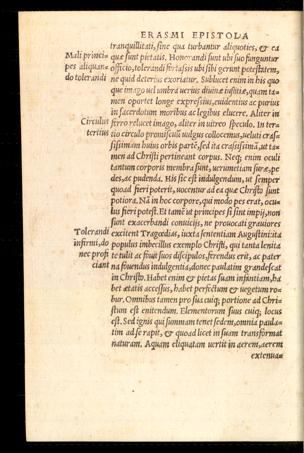 ERASMI EPISTOLA
tranquillitati, sine qua turbantur aliquoties, & ea
Mali princi-
pes aliquan-
do tolerandi
quæ sunt pietatis. Honorandi sunt ubi suo funguntur
officio, tolerandi fortassis ubi sibi gerunt potestatem,
ne quid deterius exoriatur. Sublucet enim in his quo
que imago uel umbra uerius diuinæ iustitiæ, quam ta-
men oportet longe expressius, euidentius ac purius
in sacerdotum moribus ac legibus elucere. Aliter in
Circulus
tertius
ferro relucet imago, aliter in uitreo speculo. In ter-
tio circulo promiscuũ uulgus collocemus, ueluti cras-
sissimam huius orbis partẽ, sed ita crassissimã, ut ta-
men ad Christi pertineant corpus. Neq; enim oculi
tantum corporis membra sunt, uerumetiam suræ, pe
des, ac pudenda. His sic est indulgendum, ut semper
quoad fieri poterit, uocentur ad ea quæ Christo sunt
potiora. Nã in hoc corpore, qui modo pes erat, ocu-
lus fieri potest. Et tamẽ ut principes si sint impij, non
sunt exacerbandi conuicijs, ne prouocati grauiores
Tolerandi
infirmi, do
nec profi
ciant
excitent Tragœdias, iuxta sententiam Augustini: ita
populus imbecillus exemplo Christi, qui tanta lenita
te tulit ac fouit suos discipulos, ferendus erit, ac pater
na fouendus indulgentia, donec paulatim grandescat
in Christo. Habet enim & pietas suam infantiam, ha
bet ætatis accessus, habet perfectum & uegetum ro-
bur. Omnibus tamen pro sua cuiq; portione ad Chri-
stum est enitendum. Elementorum suus cuiq; locus
est. Sed ignis qui summam tenet sedem, omnia paula-
tim ad se rapit, & quoad licet in suam transformat
naturam. Aquam eliquatam uertit in aerem, aerem
extenua-